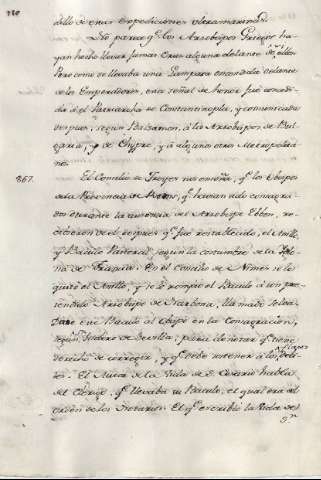 780
dillo de enviar expediciones ultramarinas.
No parece q.e los Arzobispos Griegos ha-
yan hecho llevar jamas Cruz alguna delante de si; ellos
Pero como se llevaba una Lampara encendida delante
de los Emperadores, esta señal de honor fue concedi-
da á el Patriarcha de Constantinopla, y comunicada
despues, segun Balsamon, á los Arzobispos de Bul-
garia, y de Chypre, y á algunos otros Metropolita-
nos.
867. El Concilio de Troyes nos enseña, q.e los Obispos
de la Provincia de Rems, q.e havian sido consagra-
dos durante la ausencia del Arzobispo Ebbon, re-
cibieron de el despues q.e fue restablecido, el Anillo,
y Baculo Pastoral, segun la costumbre de la Igle-
sia de Francia. En el Concilio de Nimes se le
quitó el Anillo, y se le rompió el Baculo á un pre-
tendido Arzobispo de Narbona, llamado Selva.
Dase ese Baculo al Obispo en la Consagracion,
segun Isidoro de Sevilla, para denotar q.e tiene
derecho de corregir, y q.e debe sostener á los debi-
les. El Autor de la Vida de S. Cesario habla
del Clerigo, q.e llevaba su Baculo, el qual era ofi-
cio de los Notarios. El q.e escribió la Vida de
S.n